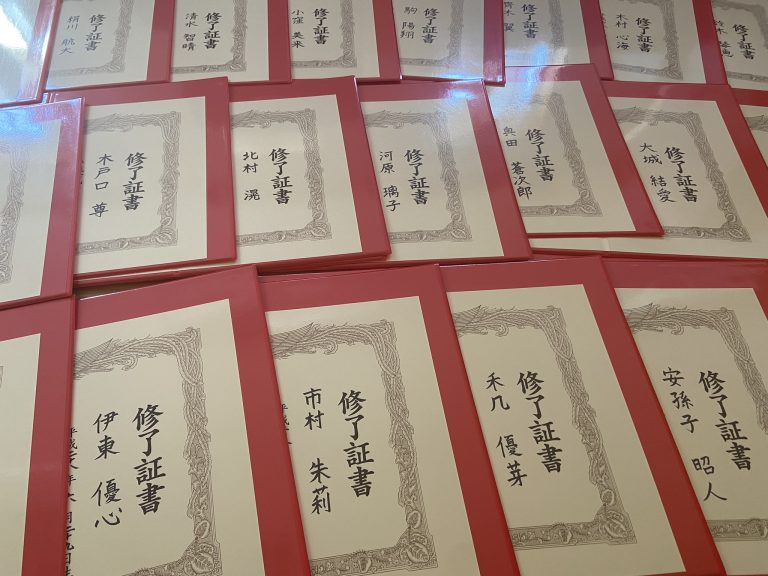 修了証書
絹川 航大
修了証書
清水 智晴
修了証書
小窪 美来
修了証書
駒 陽翔
修了証書
修了証書
木村 心海
修了証書
修了証書
木戸口 尊
修了証書
北村 滉
修了証書
河原 璃子
修了証書
奥田 蒼次郎
修了証書
大城 結愛
修了証書
伊東 優心
修了証書
市村 朱莉
修了証書
禾几 優芽
修了証書
安孫子 昭人